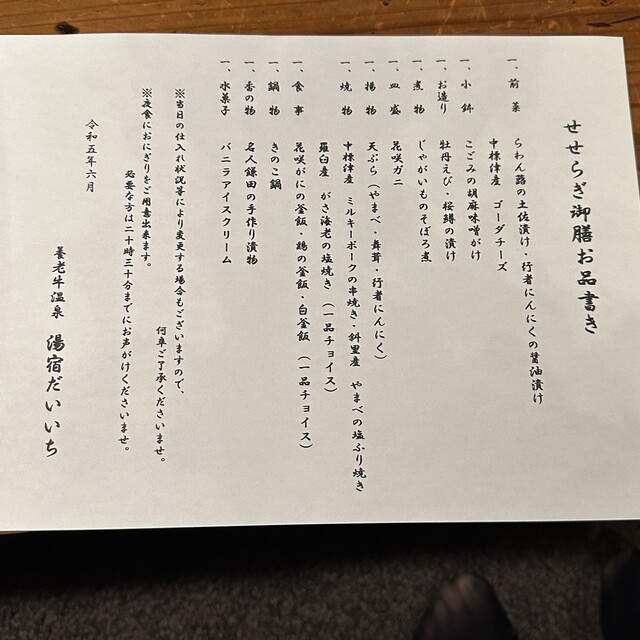 せせらぎ御膳お品書き
一、前菜 らわん蕗の土佐漬け・行者にんにくの醤油漬け
中標津産 ゴーダチーズ
一、小鉢 こごみの胡麻味噌がけ
一、お造り 牡丹えび・桜鱒の漬け
一、煮物 じゃがいものそぼろ煮
一、皿盛 花咲ガニ
一、揚物 天ぷら（やまべ・舞茸・行者にんにく）
一、焼物 中標津産 ミルキーポークの串焼き・斜里産 やまべの塩ふり焼き
羅臼産 がさ海老の塩焼き（一品チョイス）
一、食事 花咲がにの釜飯・鶏の釜飯・白釜飯（一品チョイス）
一、鍋物 きのこ鍋
一、香の物 名人鎌田の手作り漬物
一、水菓子 バニラアイスクリーム
※当日の仕入れ状況等により変更する場合もございますので、
何卒ご了承くださいませ。
※夜食におにぎりをご用意出来ます。
必要な方は二十時三十分までにお声がけくださいませ。
令和五年六月
養老牛温泉 湯宿だいいち